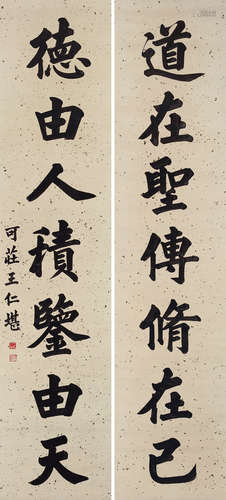 道在聖傳脩在己
德由人積鑒由天
可莊王仁堪